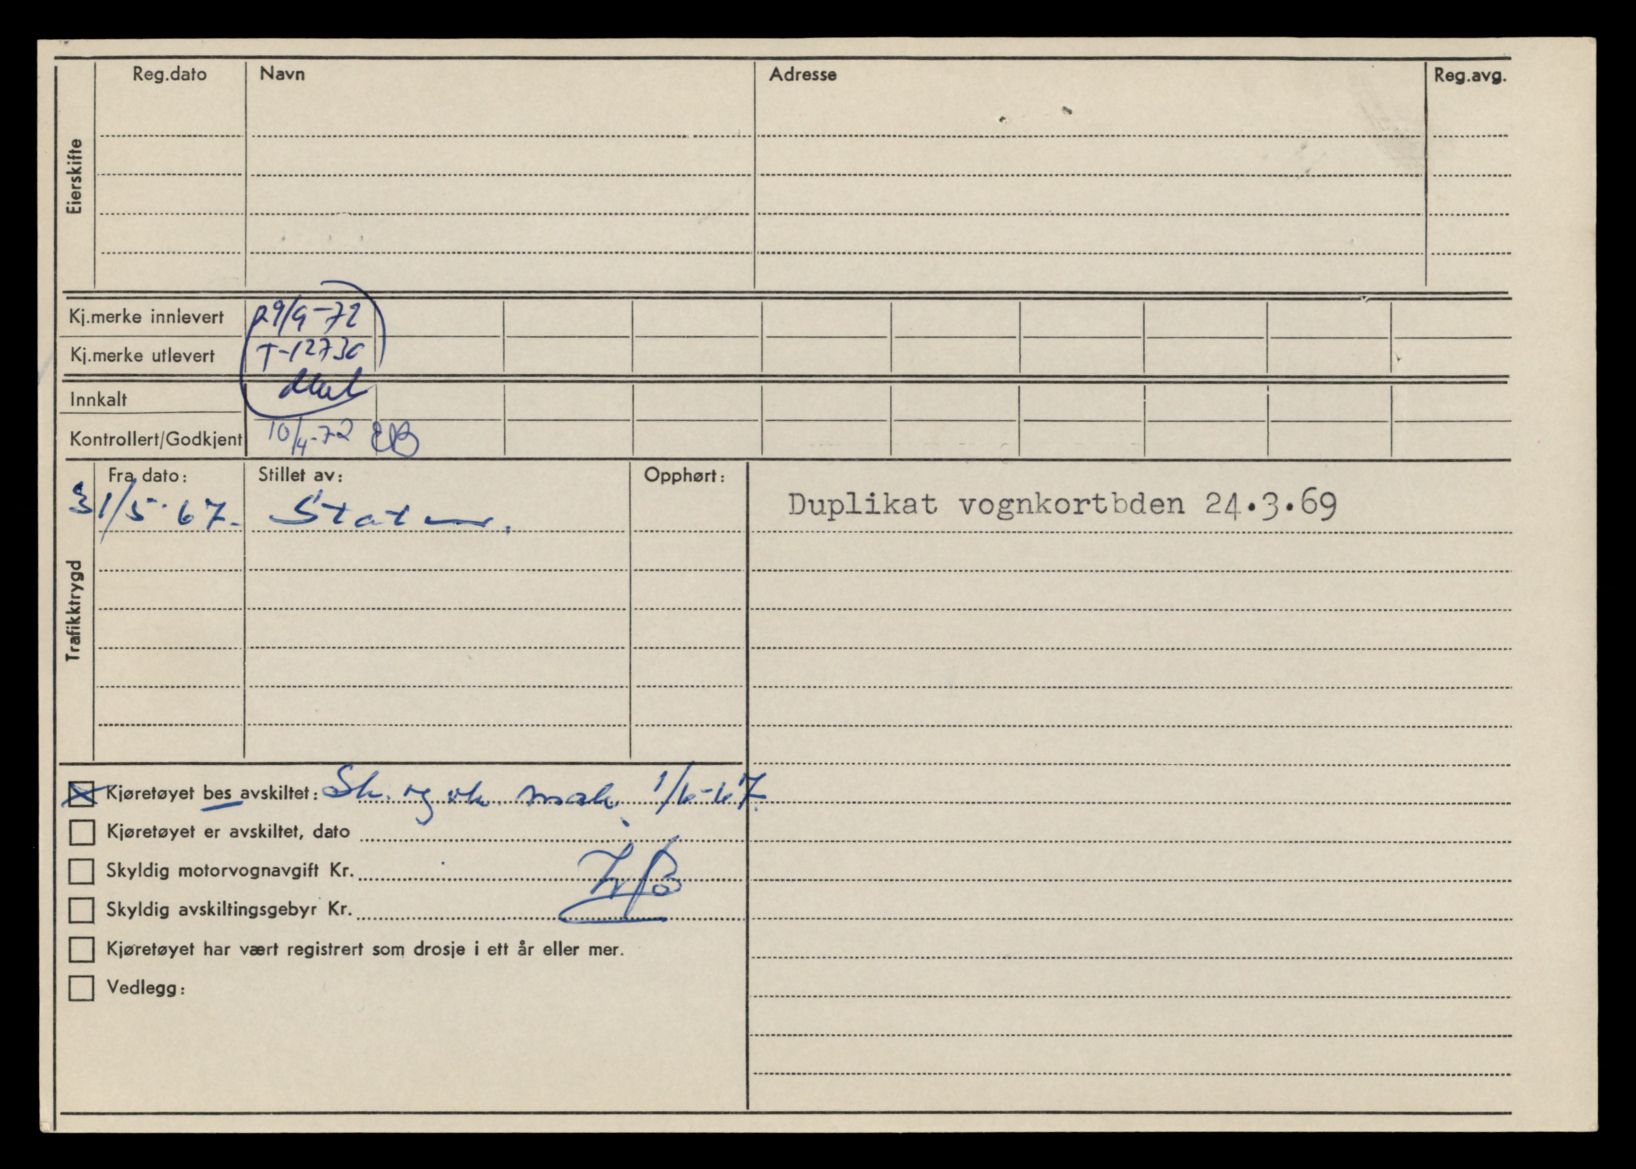 Reg.dato Navn Adresse Reg.avg.
Eierskifte
Kj.merke innlevert 29/9-72
Kj.merke utlevert T-12730
Innkalt
Kontrollert/Godkjent 10/4-72 EB
Fra dato: Stillet av: Opphørt:
31/5-67. Staten. Duplikat vognkortbden 24.3.69
Trafikktrygd
Kjøretøyet bes avskiltet: Sk. og vk. 1/6-67.
Kjøretøyet er avskiltet, dato
Skyldig motorvognavgift Kr.
Skyldig avskiltingsgebyr Kr.
Kjøretøyet har vært registrert som drosje i ett år eller mer.
Vedlegg: